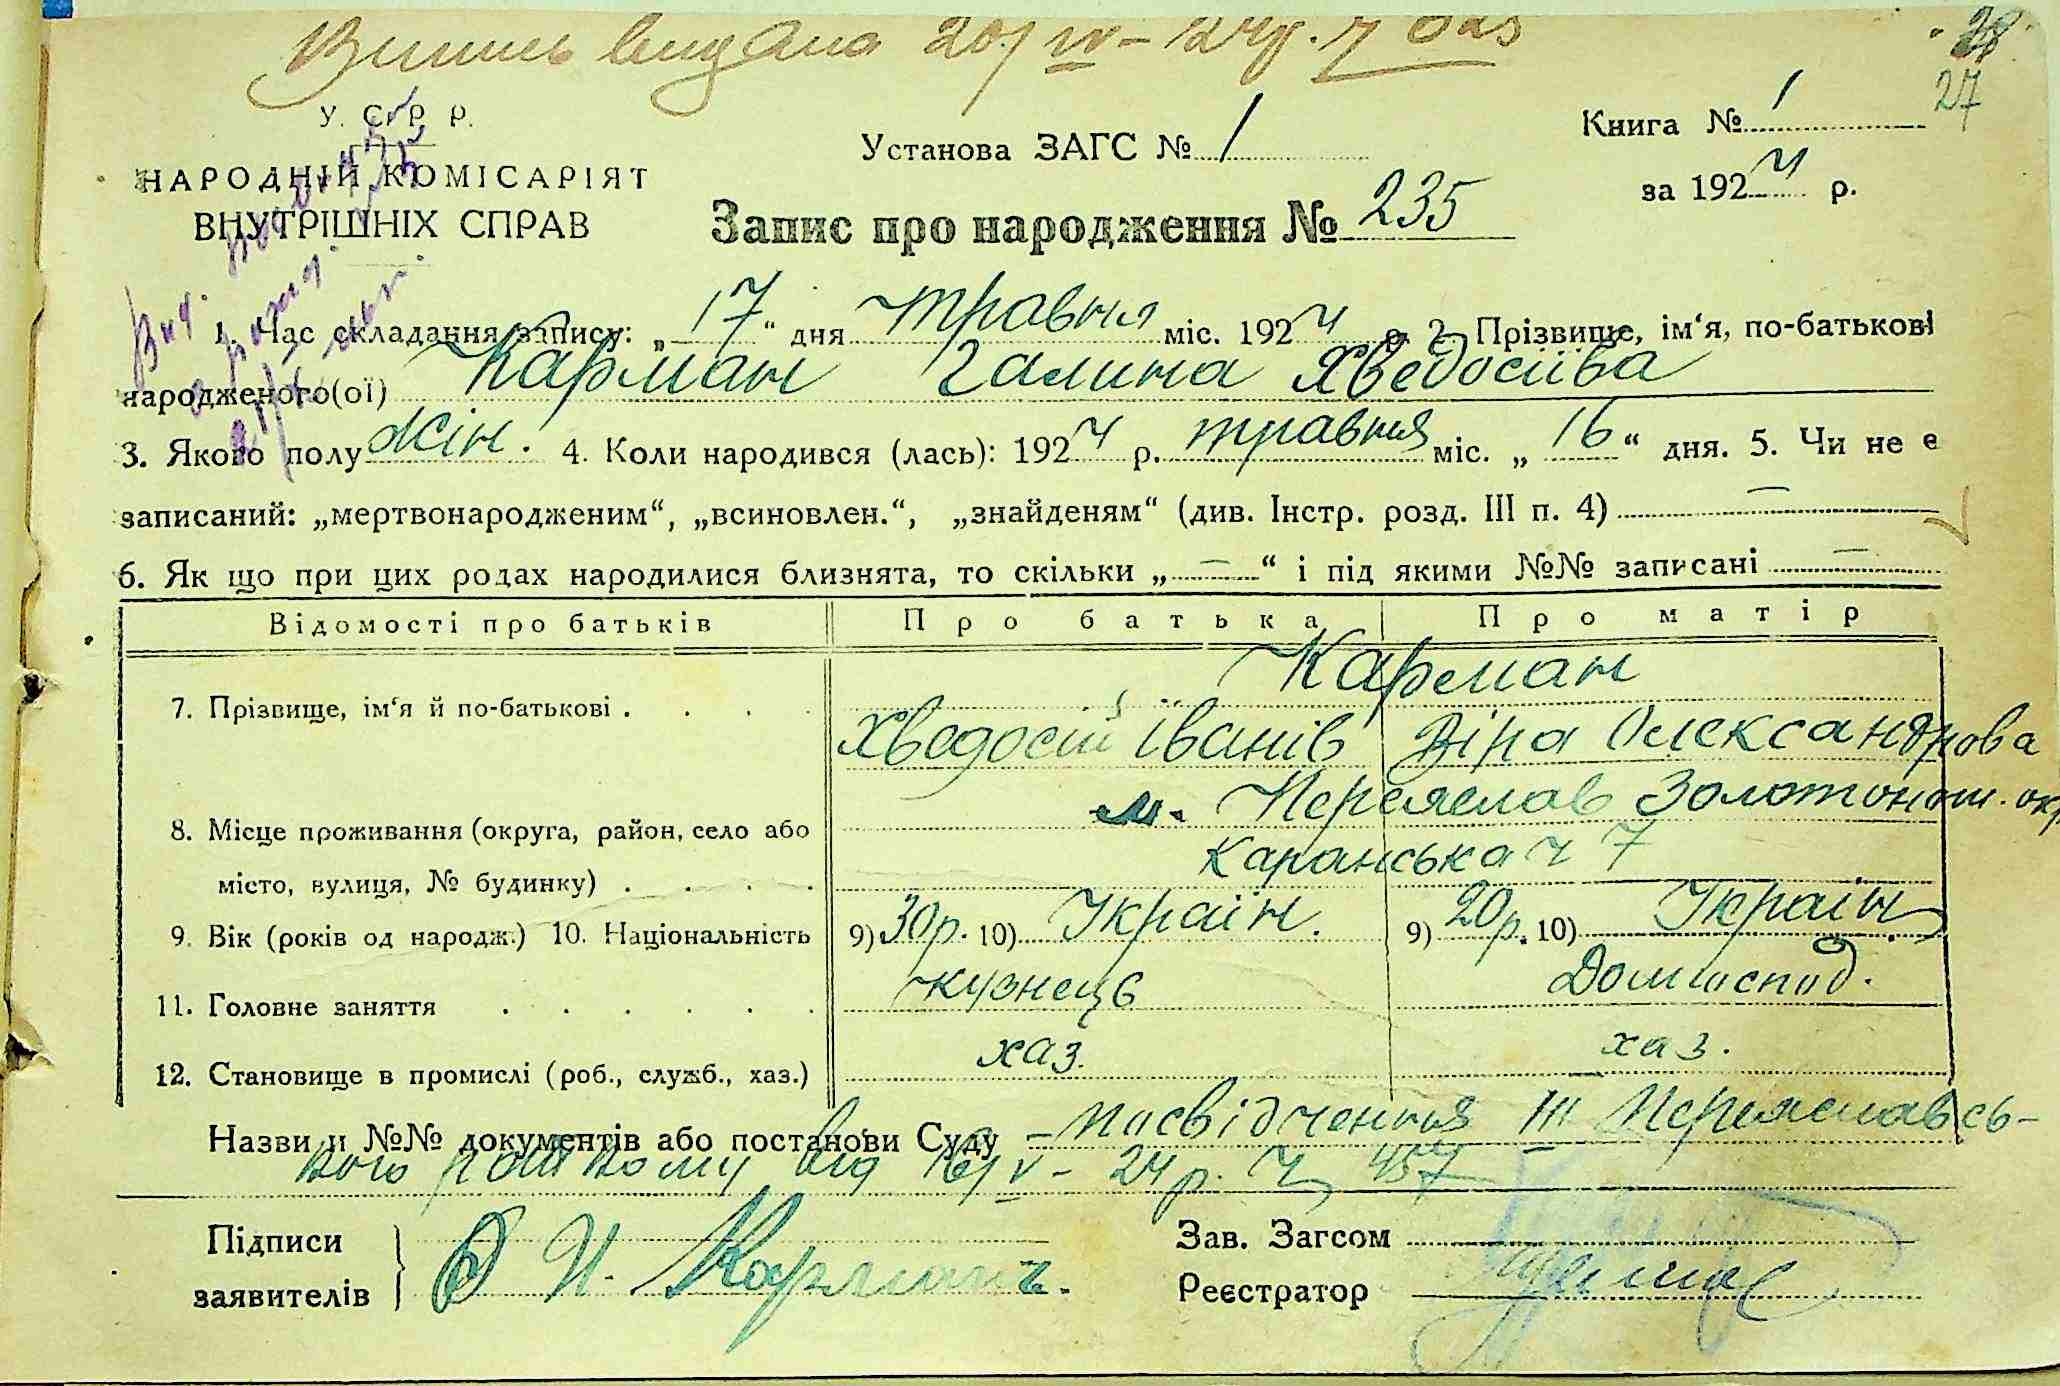 Випись видана 20/IV-24р. Ч 623
28
27
У. С. Р. Р.
НАРОДНІЙ КОМІСАРІЯТ
ВНУТРІШНІХ СПРАВ
Установа ЗАГС № 1
Книга № 1
за 1924 р.
Запис про народження № 235
1. Час складання запису: „17“ дня травня міс. 1924 р. 2. Прізвище, ім‘я, по-батькові
народженого(ої) Карман Галина Хведосіїва
3. Якого полу жін. 4. Коли народився (лась): 1924 р. травня міс. „16“ дня. 5. Чи не є
записаний: „мертвонародженим“, „всиновлен.“, „знайденям“ (див. Інстр. розд. III п. 4) —
6. Як що при цих родах народилися близнята, то скільки „—“ і під якими №№ записані —
Відомості про батьків Про батька Про матір
Карман
7. Прізвище, ім‘я й по-батькові . . . .
Хведосій Іванів Віра Олександрова
м. Переяслав Золотонош. окр
8. Місце проживання (округа, район, село або
Каранська ч 7
місто, вулиця, № будинку) . . . .
9. Вік (років од народж.) 10. Національність 9) 30р. 10) Україн. 9) 20р. 10) Україн.
11. Головне заняття . . . . . . кузнець Домгоспод.
12. Становище в промислі (роб., служб., хаз.) хаз. хаз.
Назви и №№ документів або постанови Суду – посвідчення III Переяславсь-
кого райкому від 16/V-24р. Ч 457
Підписи
заявителів
Ф И. Карманъ.
Зав. Загсом
Реєстратор